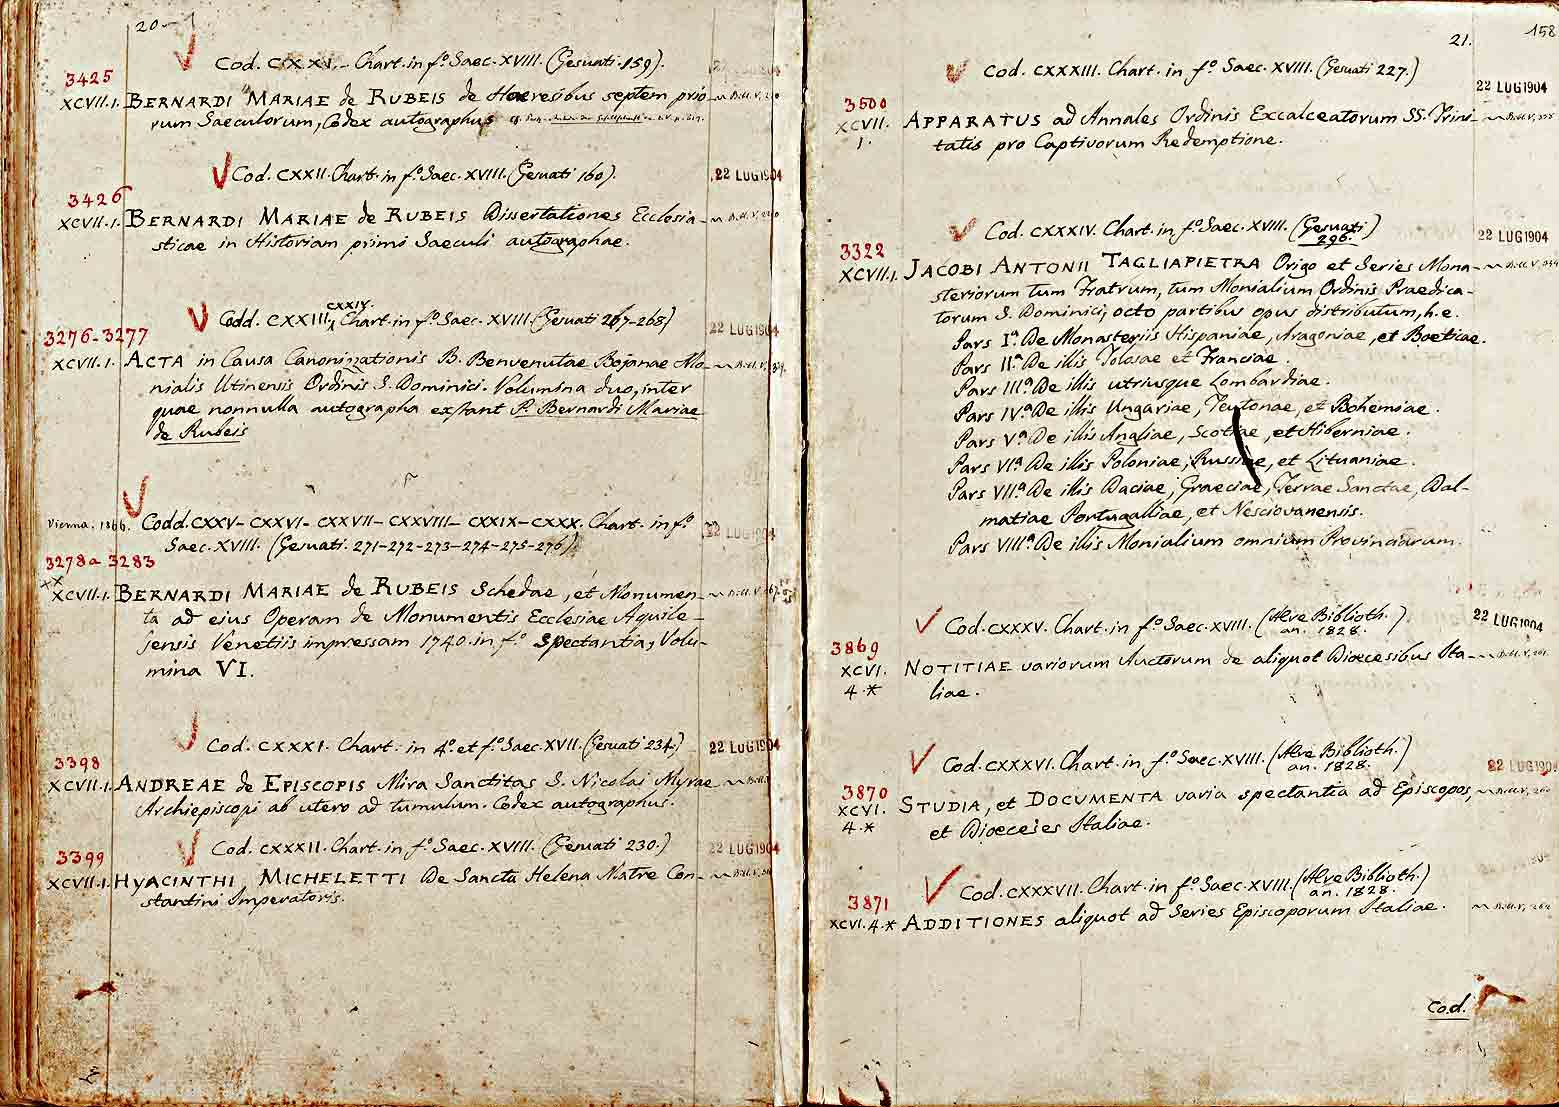 20
Cod. CXXI. Chart. in fº. Saec. XVIII. (Gesuati. 159).
3425
XCVII.1. BERNARDI MARIAE de RUBEIS de Haeresibus septem prio-
rum Saeculorum, Codex autographus
Cod. CXXII. Chart. in fº. Saec. XVIII. (Gesuati 160).
22 LUG 1904
3426
XCVII.1. BERNARDI MARIAE de RUBEIS Dissertationes Ecclesia-
sticae in Historiam primi Saeculi autographae.
CXXIV.
Codd. CXXIII, Chart. in fº. Saec. XVIII. (Gesuati 267-268)
22 LUG 1904
3276-3277
XCVII.1. ACTA in Causa Canonizzationis B. Benvenutae Bojanae Mo-
nialis Utinensis Ordinis S. Dominici. Volumina duo, inter
quae nonnulla autographa exstant P. Bernardi Mariae
de Rubeis
Vienna. 1866. Codd. CXXV- CXXVI- CXXVII- CXXVIII- CXXIX- CXXX. Chart. in fº.
22 LUG 1904
Saec. XVIII. (Gesuati. 271-272-273-274-275-276)
3278 a 3283
XX
XCVII.1. BERNARDI MARIAE de RUBEIS Schedae, et Monumen-
ta ad eius Operam de Monumentis Ecclesiae Aquile-
jensis Venetiis impressam 1740. in fº. spectantia, Volu-
mina VI.
Cod. CXXXI. Chart. in 4º. et fº. Saec. XVII. (Gesuati 234.)
22 LUG 1904
3398
XCVII.1. ANDREAE de EPISCOPIS Mira Sanctitas S. Nicolai Myrae
Archiepiscopi ab utero ad tumulum. Codex autographus.
Cod. CXXXII. Chart. in fº. Saec. XVIII. (Gesuati 230.)
22 LUG 1904
3399
XCVII.1. HYACINTHI MICHELETTI De Sancta Helena Matre Con-
stantini Imperatoris.
21.
158
Cod. CXXXIII. Chart. in fº. Saec. XVIII. (Gesuati 227.)
22 LUG 1904
3500
XCVII.
1.
APPARATUS ad Annales Ordinis Excalceatorum SS. Trini-
tatis pro Captivorum Redemptione.
Cod. CXXXIV. Chart. in fº. Saec. XVIII. (Gesuati)
296.
22 LUG 1904
3322
XCVII.1. JACOBI ANTONII TAGLIAPIETRA Origo et Series Mona-
steriorum tum Fratrum, tum Monialium Ordinis Praedica-
torum S. Dominici, octo partibus opus distributum, h.e.
Pars Iª. De Monasteriis Hispaniae, Aragoniae, et Boeticae.
Pars IIª. De illis Tolosae et Franciae.
Pars IIIª. De illis utriusque Lombardiae.
Pars IVª. De illis Ungariae, Teutonae, et Bohemiae.
Pars Vª. De illis Angliae, Scotiae, et Hiberniae.
Pars VIª. De illis Poloniae, Russiae, et Lituaniae.
Pars VIIª. De illis Daciae, Graeciae, Terrae Sanctae, Dal-
matiae Portugalliae, et Nesciovanensis.
Pars VIIIª. De illis Monialium omnium Provinciarum.
Cod. CXXXV. Chart. in fº. Saec. XVIII. (Alre Biblioth.)
an. 1828.
22 LUG 1904
3869
XCVI.
4.*
NOTITIAE variorum Auctorum de aliquot Dioecesibus Ita-
liae.
Cod. CXXXVI. Chart. in fº. Saec. XVIII. (Alre Biblioth.)
an. 1828.
22 LUG 1904
3870
XCVI.
4.*
STUDIA, et DOCUMENTA varia spectantia ad Episcopos,
et Dioeceses Italiae.
Cod. CXXXVII. Chart. in fº. Saec. XVIII. (Alre Biblioth.)
an. 1828.
3871
XCVI.4.* ADDITIONES aliquot ad Series Episcoporum Italiae.
Cod.